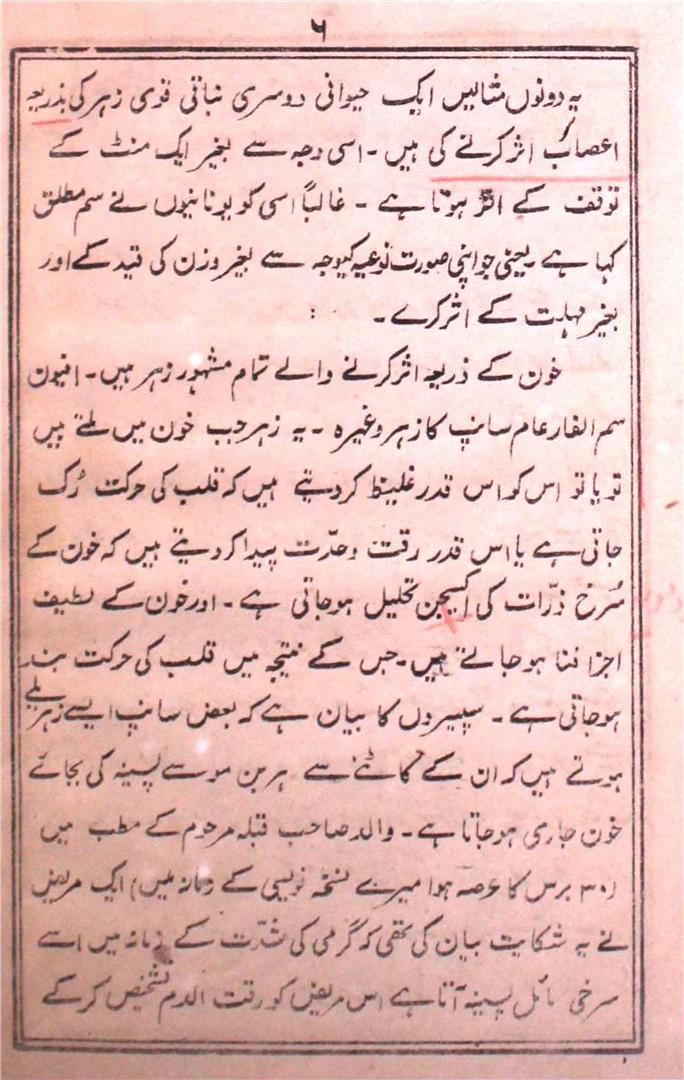 ۶
یہ دونوں مثالیں ایک حیوانی دوسری نباتی قوی زہر کی بذریعہ
اعصاب اثر کرنے کی ہیں ۔ اسی وجہ سے بغیر ایک منٹ کے
توقف کے اثر ہوتا ہے ۔ غالباً اسی کو یونانیوں نے سم مطلق
کہا ہے یعنی جو اپنی صورت نوعیہ کیوجہ سے بغیر وزن کی قید کے اور
بغیر مہلت کے اثر کرے ۔
خون کے ذریعہ اثر کرنے والے تمام مشہور زہر ہیں ۔ افیون
سم الفار عام سانپ کا زہر وغیرہ ۔ یہ زہر جب خون میں ملتے ہیں
تو یا تو اس کو اس قدر غلیظ کر دیتے ہیں کہ قلب کی حرکت رُک
جاتی ہے یا اس قدر رقت و حدّت پیدا کر دیتے ہیں کہ خون کے
سُرخ ذرّات کی اکسیجن تحلیل ہو جاتی ہے ۔ اور خون کے لطیف
اجزا فنا ہو جاتے ہیں ۔ جس کے نتیجہ میں قلب کی حرکت بند
ہو جاتی ہے ۔ سپیروں کا بیان ہے کہ بعض سانپ ایسے زہریلے
ہوتے ہیں کہ ان کے کاٹنے سے ہر بن مو سے پسینہ کی بجائے
خون جاری ہو جاتا ہے ۔ والد صاحب قبلہ مرحوم کے مطب میں
(۳۰ برس کا عرصہ ہوا میرے نسخہ نویسی کے زمانہ میں) ایک مریض
نے یہ شکایت بیان کی تھی کہ گرمی کی شدّت کے زمانہ میں اسے
سرخی مائل پسینہ آتا ہے اس مریض کو رقت الدم تشخیص کر کے